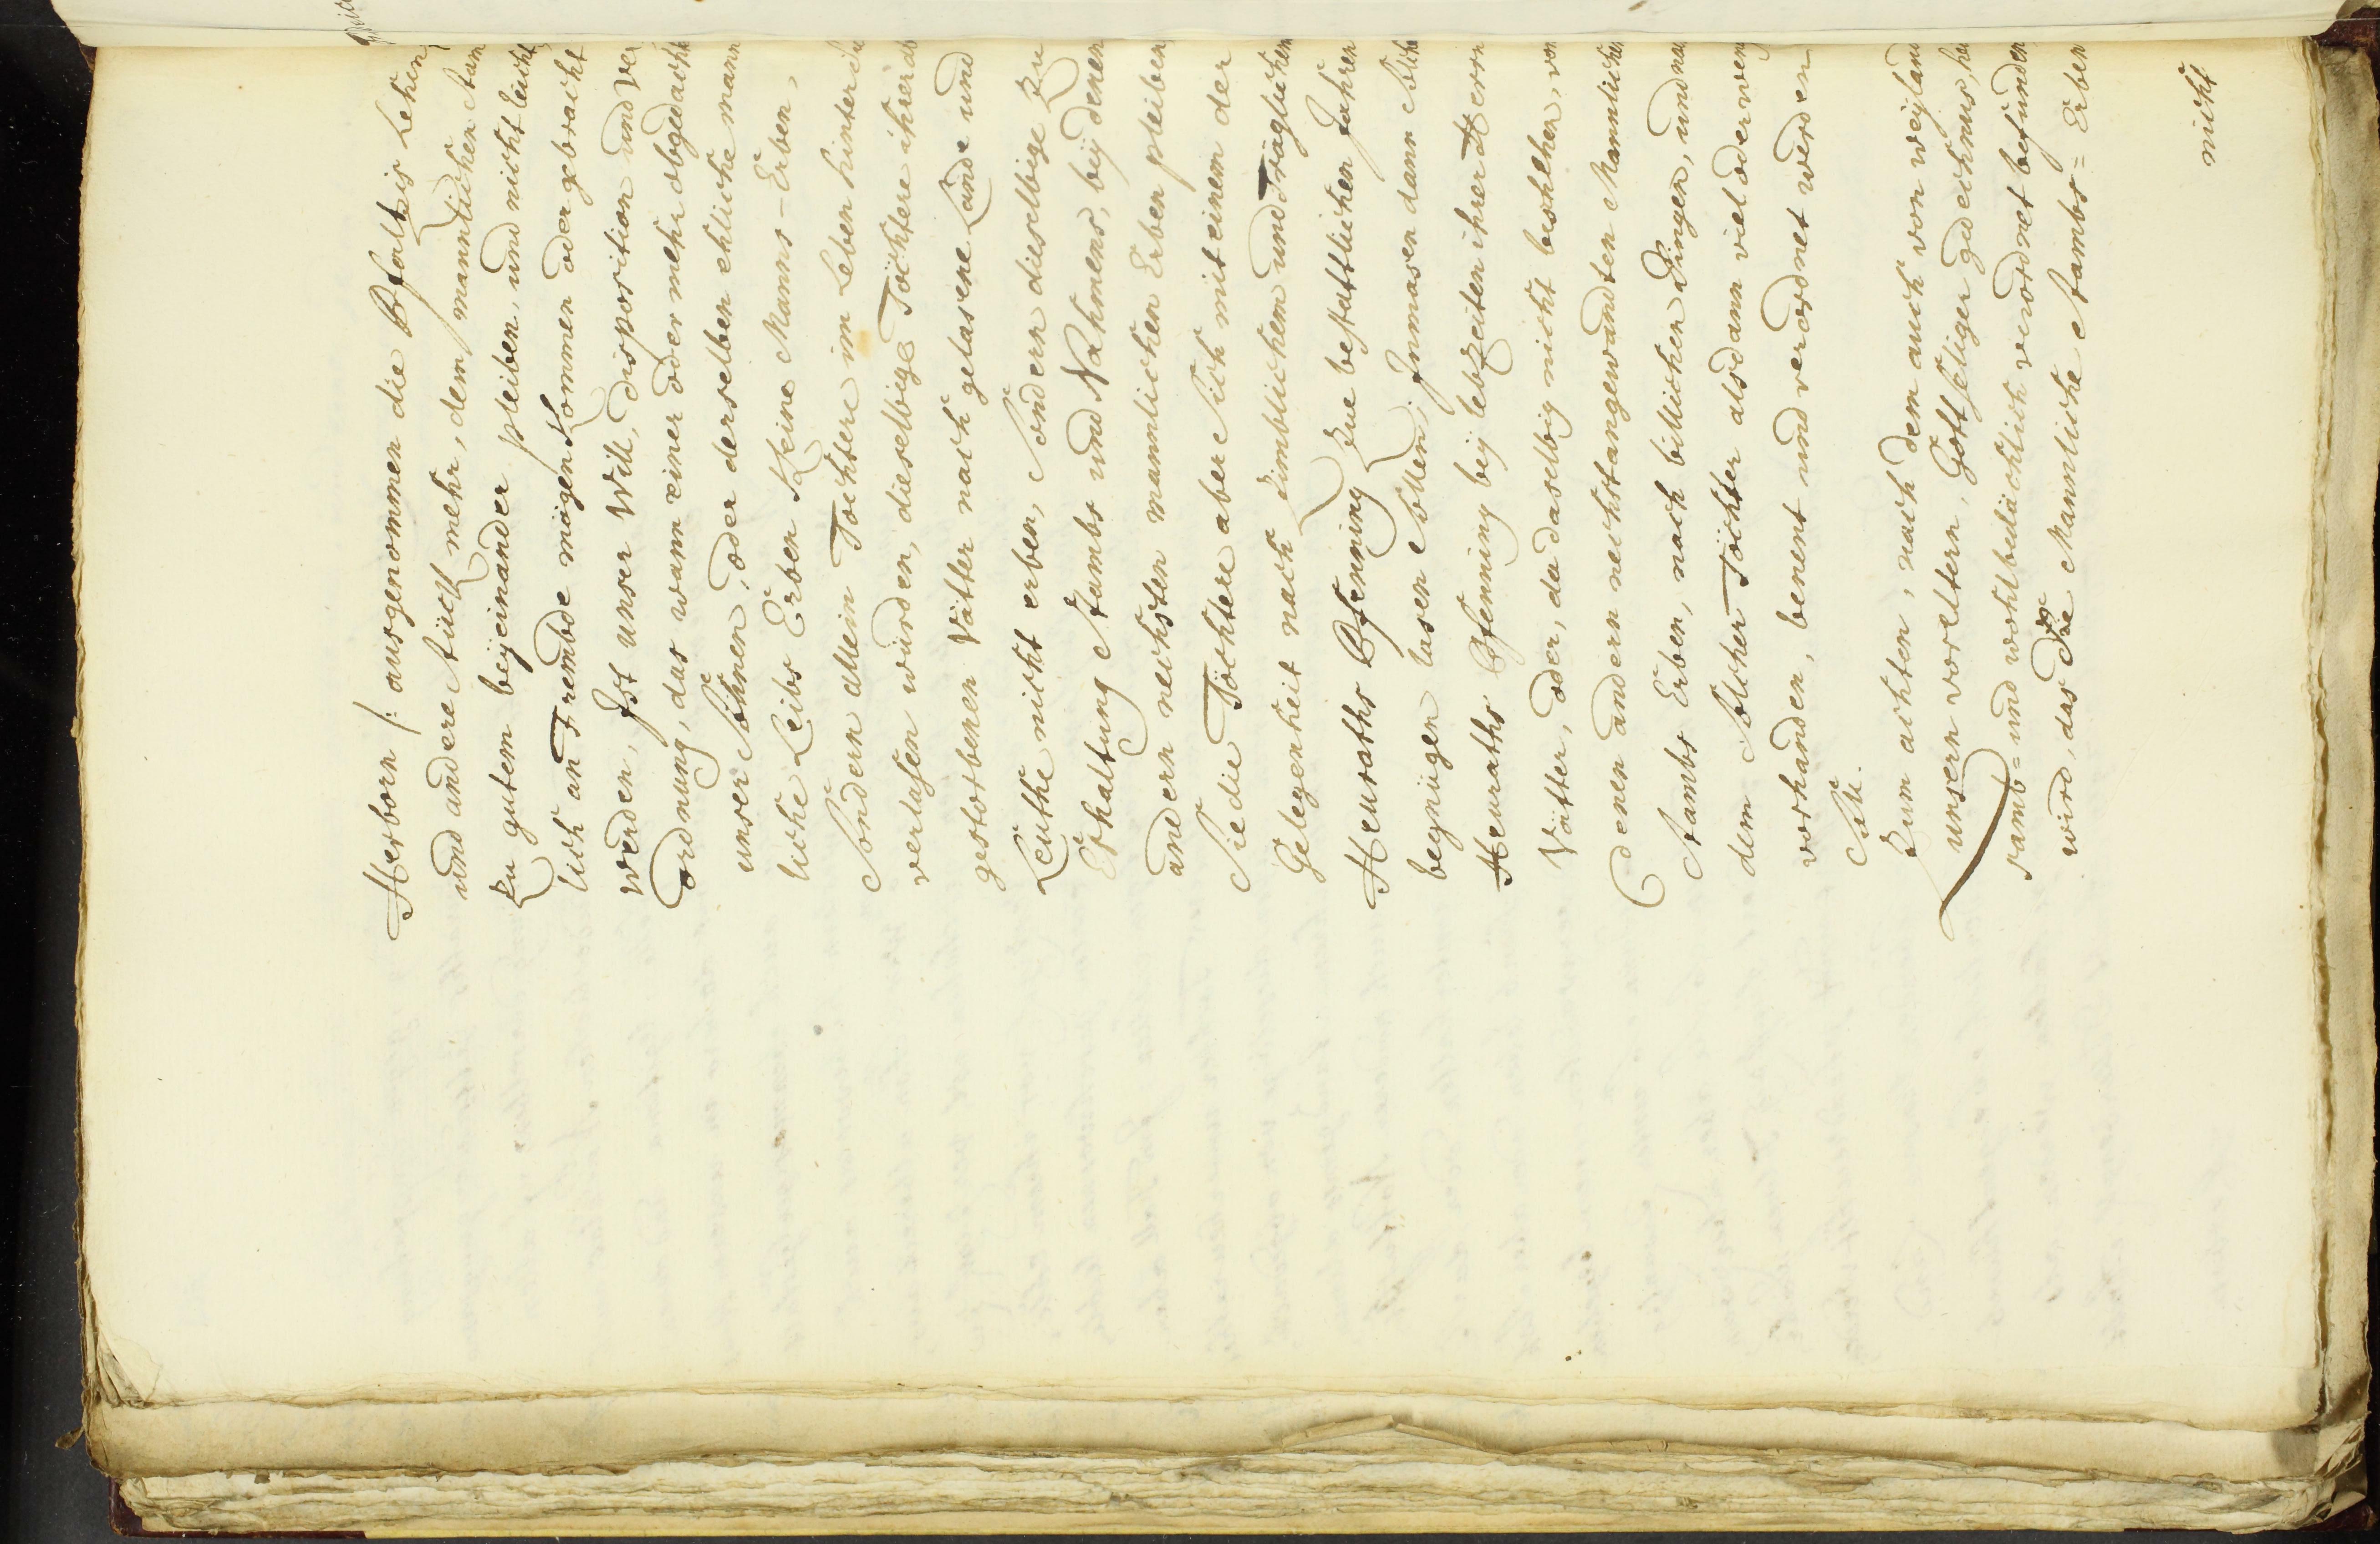 Herborn /: ausgenommen die Pfaltzis Lehen
und andere Stück mehr, dem mannlichen Stam
Zu gutem beÿeinander pleiben, und nicht leicht
lich an Frembde mögen kommen oder gebracht
werden, Ist unser Will, disposition und Ver
ordnung, das wann einer oder mehr obgedacht
unser Söhnen, oder derselben ehliche mann
liche Leibs Erben keine Manns-Erben,
Sondern allein Töchtere im Leben hinter
verlasen würden, dieselbige Töchtere ihrer ab
gestorbenen Vätter nach gelasene Lande und
Leuthe nicht erben, Sondern dieselbige Zu
Erhaltung Stambs und Nahmens, beÿ denen
andern nechsten mannlichen Erben pleiben
Sie die Töchtere aber Sich mit einem der
Gelegenheit nach Zimblichem und Träglichem
Heuraths Pfenning Zue bestattlichen Jahren
begnügen lasen Sollen, Inmasen dann Solche
Heuraths Pfenning beÿ lebzeiten ihrer Herrn
Vätter, oder, da daselbig nicht beschehen, von
denen andern nechstangewandten Mannlichen
Stambs Erben, nach billichen Dingen, und nach
dem Solcher Töchter alsdann viel oder wenig
vorhanden, benent und verordnet werden
Soll.
Zum achten, nach dem auch von weÿland
unsern voreltern, Gottseliger gedechnus, her
samb= und wohlbedächtlich verordnet befunden
wird, das die Mannliche Stambs= Erben
nicht